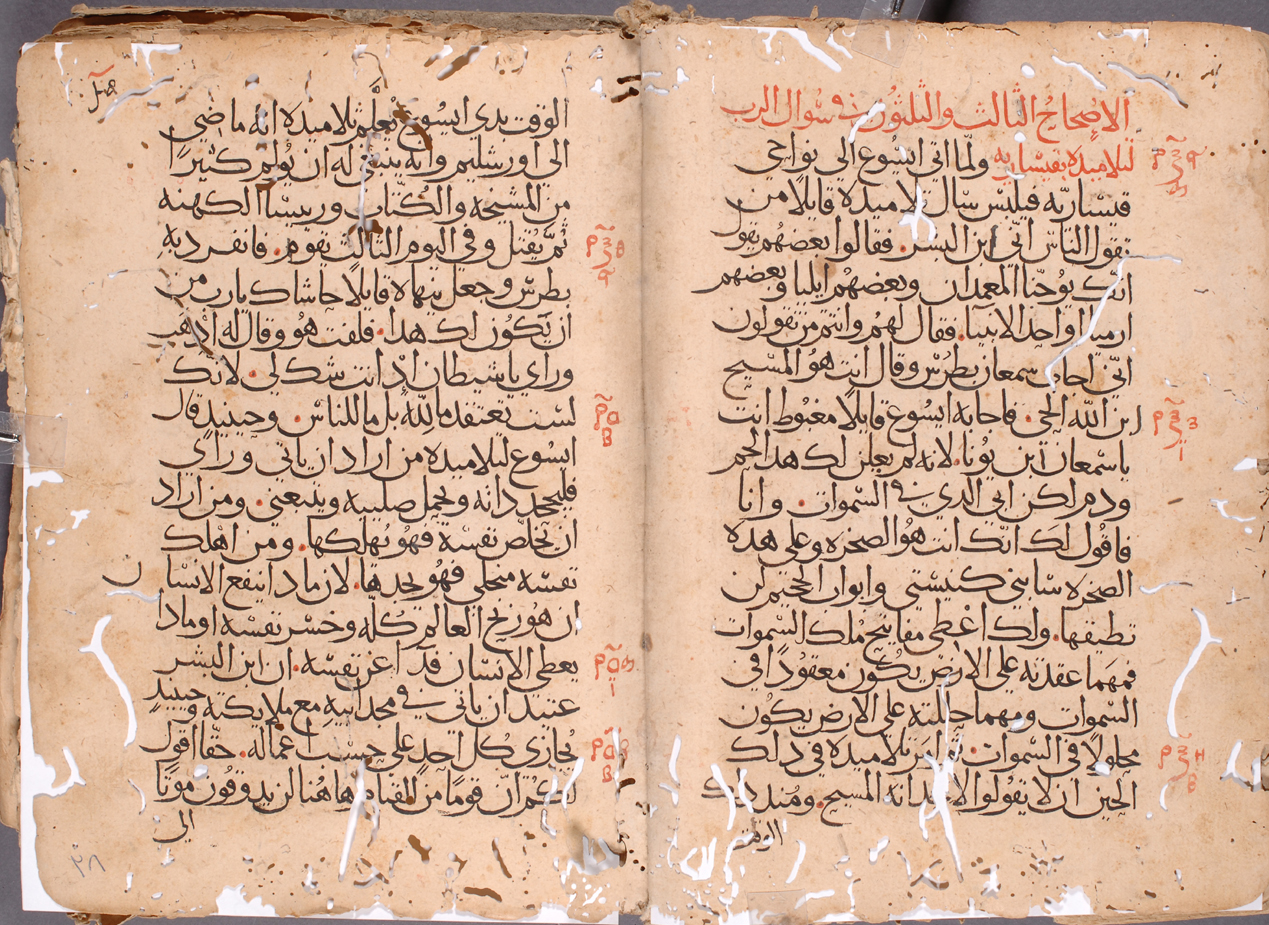 الاصحاحُ الثالث والثلثون في سُوال الرب
لتلاميده بقيسَاريه ولمّا اتى ايسُوع الى نواحي
قيسَاريّه فيلبّس سَال تلاميدة قايلًا من
تقول الناسُ انّي ابن البشر. فقالوا بعضهُم يقول
انك يُوحنّا المعمدان وبعضهُم ايليا وبعضهم
ارميا او احد الانبيا. فقال لهُم وانتم من تقولون
انّي اجاب سمعان بطرُس وقال انت هُو المسَيح
ابن اللّه الحَي. فاجابه ايسُوع قايلًا مغبُوط انت
ياسمعان ابن يُونا. لانه لم يعلن لك هدا لحم
ودم لكن ابي الدي في السَموات. وانا
فاقُول لك انّك انت هُو الصخره وعلى هده
الصخره سَابني كنيسَتي وابواب الجحيم لن
تطيقها. ولك اعْطي مفاتيح مُلك السَموات
فمهَما عقدته على الارض يكُون معقودًا في
السَموات ومهما حللته على الارض يكُون
محلولًا في السَموات. تلاميدة في دلك
الحين ان لا يقُولوا لاحد انه المسيح. ومُند دلك
الوقت
الوقت بدي ايسُوع يُعلّم تلاميدة انه ماضي
الى اورشليم وانه ينبغي له ان يُولم كثيرًا
من المشيخة والكُتّاب وريسَا الكهنه
ثمّ يُقتل وفي اليوم الثالث يقوم. فانفرد به
بطرسُ وجعل ينهاه قايلًا حَاشاك يارب من
ان يكُون لك هدا. فلفت هُو وقال له ادهب
وراي ياشيطان اد انت شك لي. لانك
لسَت تعتقد ما للّه بل ما للناس. وحينيدٍ قال
ايسُوع لتلاميده من اراد ان ياتي وراي
فليجحد داته ويحمل صليبه ويتبعني. ومن اراد
ان يخلّص نفسَه فهُو يُهلكها. ومن اهلك
نفسَه من اجلي فهُو يجدها. لان ماد اينفع الانسَان
ان هُو ربح العالم كُلّه وخسر نفسَه اوماد ا
يعطي الانسَان فدا عن نفسَه. ان ابن البشر
عتيد ان ياتي في مجد ابيهِ مع ملايكته وحينيدٍ
يُجازي كُل احدٍ على حسَب اعمَاله. حقّا اقول
لكُم انّ قومًا من القيام هاهُنا لن يدوقُون موتًا
الى
٢٨